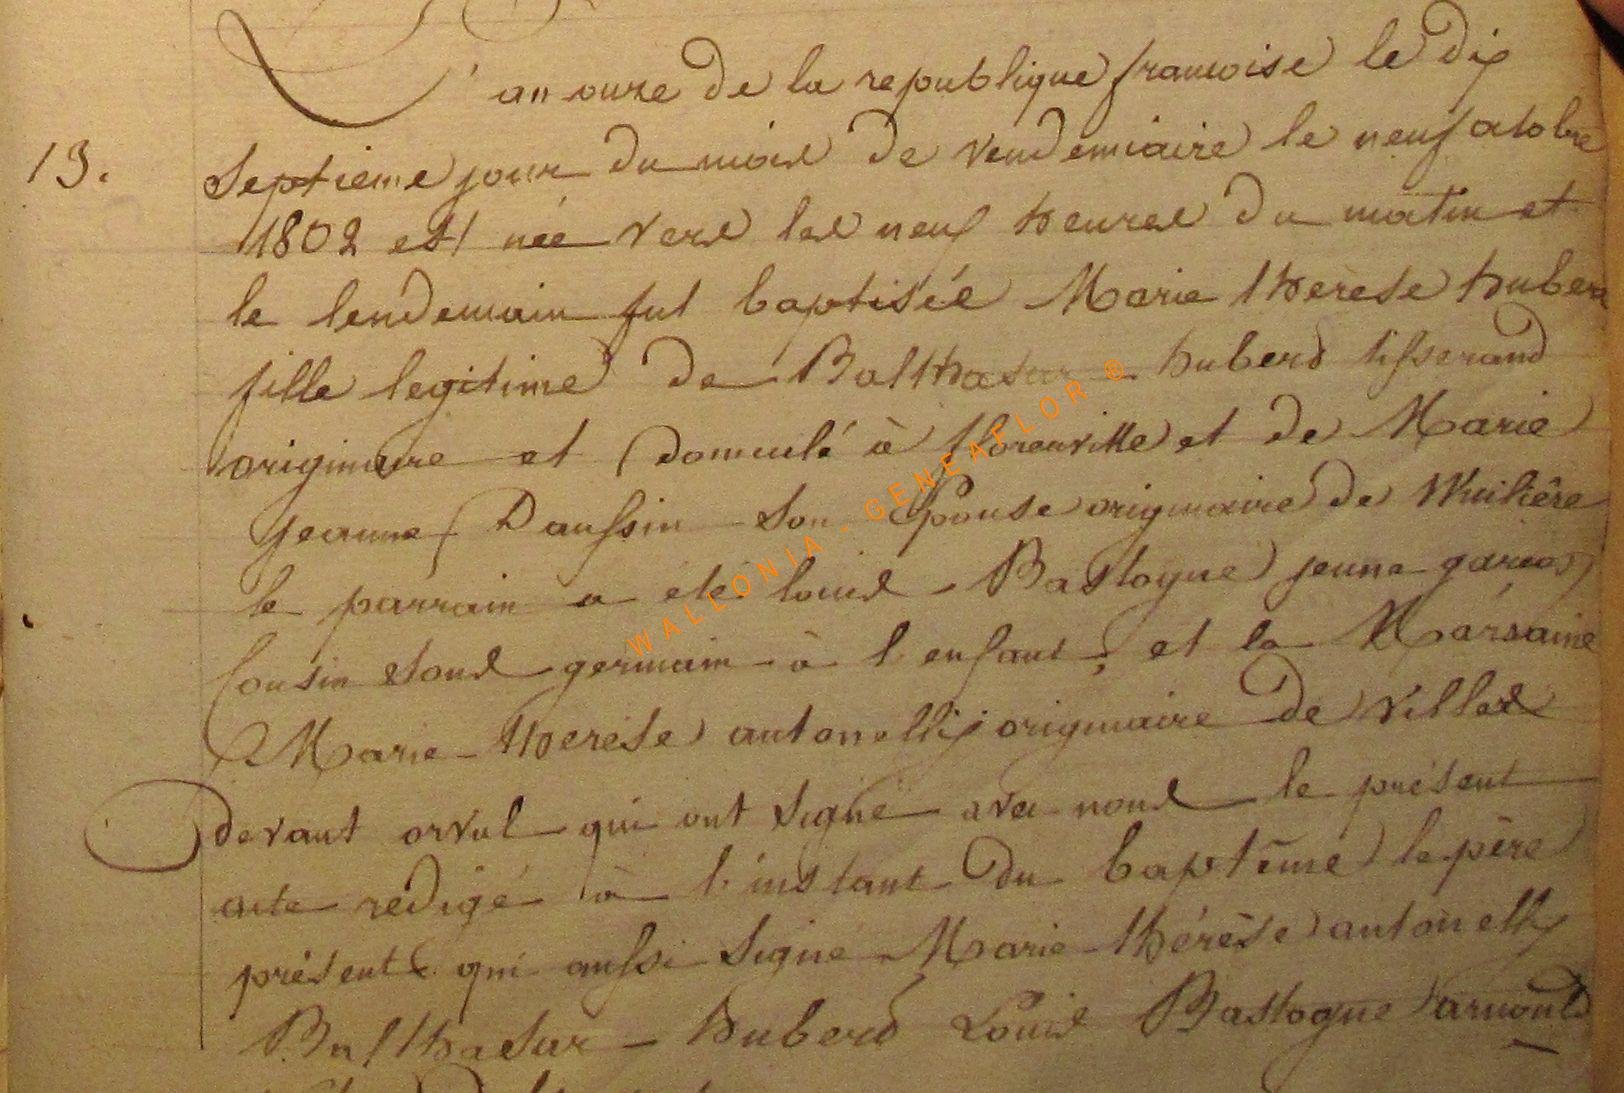 L'an onze de la republique francoise le dix
13. septieme jour du mois de vendemiaire le neuf octobre
1802 est née vers les neuf heures du matin et
le lendemain fut baptisée Marie thérèse huberd
fille legitime de Balthasar huberd tisserand
originaire et domicilé à florenville et de Marie
jeanne Daussin son Epouse originaire de
le parrain a été louis Bastogne jeune garcon
Cousin sous germain à l'enfant, et la Marraine
Marie-therese antonelly originaire de villers
devant orval qui ont signé avec nous le présent
acte redigé à l'instant du baptême le père
présent & qui aussi signé Marie-thérèse antonelly
Balthasar huberd Louis Bastogne arnould
WALLONIA - GENEAFLOR ®